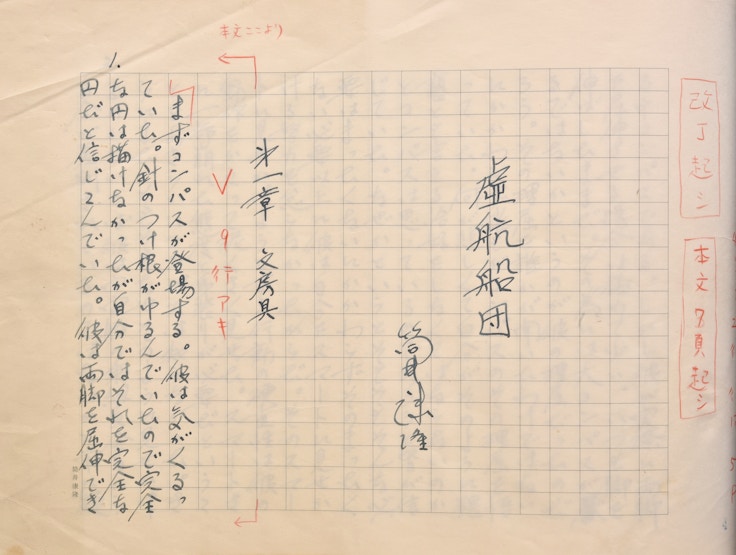 改丁起シ
本文7頁起シ
虚航船団
筒井康隆
本文ここより
第一章 文房具
9行アキ
まずコンパスが登場する。彼は気がくるっ
ていた。針のつけ根がゆるんでいたので完全
な円は描けなかったが自分ではそれを完全な
円だと信じこんでいた。彼は両脚を屈伸でき
1.
筒井康隆